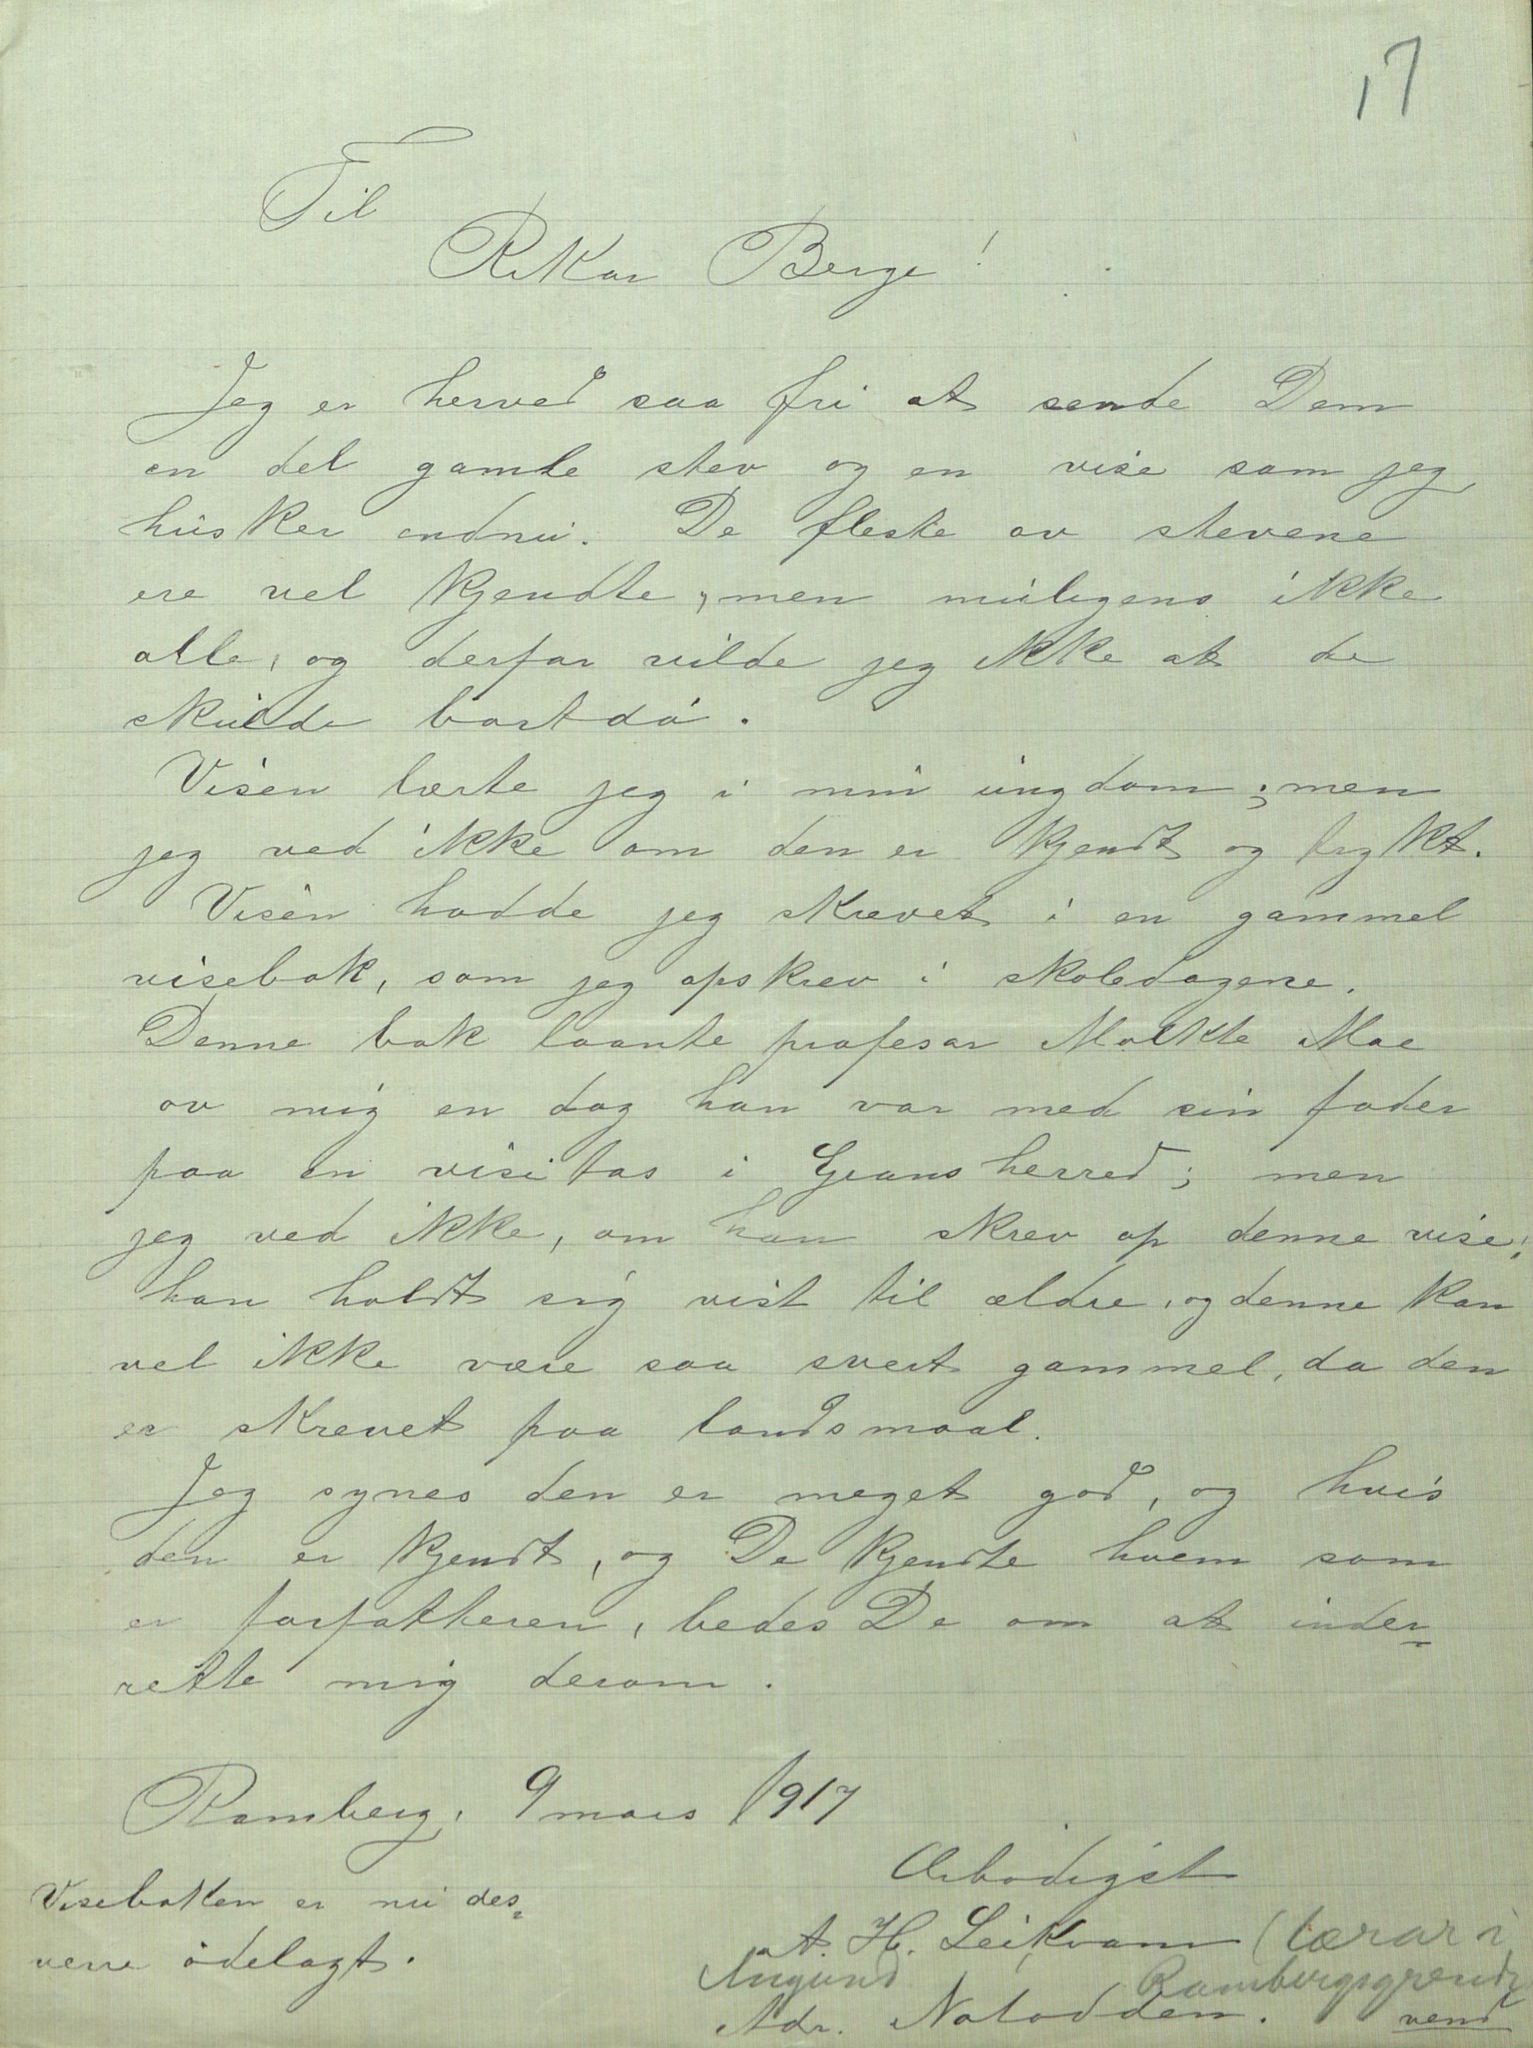 17
Til
Rikar Berge!
Jeg er herved saa fri at sende Dem
en del gamle stev og en vise som jeg
husker endnu. De fleste av stevene
ere vel kjendte, men muligens ikke
alle, og derfor vilde jeg ikke at de
skulde bortdö.
Visen lærte jeg i min ungdom; men
jeg ved ikke om den er kjendt og trykt.
Visen hadde jeg skrevet i en gammel
visebok, som jeg opskrev i skoledagene.
Denne bok laante profesor Molkte Moe
av mig en dag han var med sin fader
paa en visitas i Gransherred; men
jeg ved ikke, om han skrev op denne vise;
han holdt sig vist til ældre, og denne kan
vel ikke være saa svert gammel, da den
er skrevet paa landsmaal.
Jeg synes den er meget god, og hvis
den er kjendt, og De kjendte hvem som
er forfatteren, bedes De om at inder-
rette mig derom.
Ramberg, 9 mars 1917
Ærbödigst
A. H. Leikvam (lærar i
Augund Rambergsgrend)
Adr. Notodden. vend
Viseboken er nu des-
verre ödelagt.